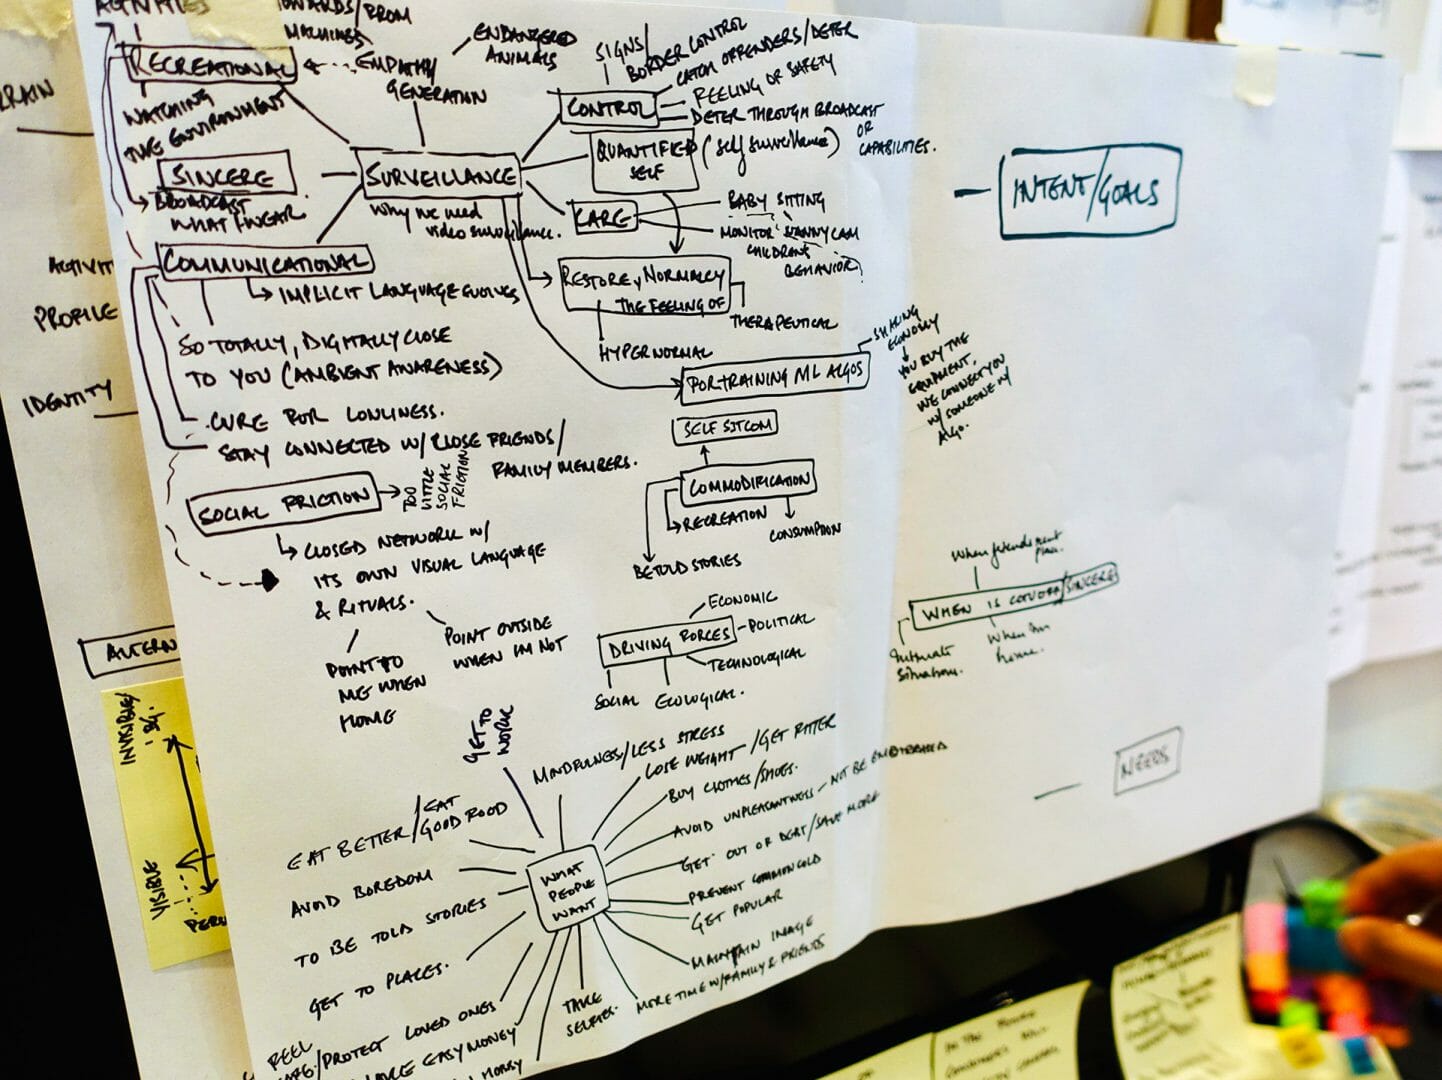 RECREATIONAL
MACHINES
EMPATHY
GENERATION
ENDANGERED
ANIMALS
SIGNS/
BORDER CONTROL
CATCH OFFENDERS/DETER
CONTROL
FEELING OF SAFETY
DETER THROUGH BROADCAST
OR
CAPABILITIES.
WATCHING
THE ENVIRONMENT
SINCERE
BROADCAST
WHAT I WEAR.
SURVEILLANCE
Why we need
video surveillance.
QUANTIFIED
SELF
(self surveillance)
CARE
BABY SITTING
MONITOR NANNY CAM
CHILDRENS
BEHAVIOR?
COMMUNICATIONAL
IMPLICIT LANGUAGE EVOLVES
RESTORE NORMALCY
THE FEELING OF
THERAPEUTICAL
HYPERNORMAL
SO TOTALLY, DIGITALLY CLOSE
TO YOU (AMBIENT AWARENESS)
CURE FOR LONLINESS.
STAY CONNECTED W/ CLOSE FRIENDS/
FAMILY MEMBERS.
FOR TRAINING ML ALGOS
SHARING
ECONOMY
YOU BUY THE
EQUIPMENT.
WE CONNECT YOU
W/ SOMEONE W/
ALGO.
SELF SITCOM
COMMODIFICATION
RECREATION
CONSUMPTION
BE TOLD STORIES
SOCIAL FRICTION
TOO
LITTLE
SOCIAL
FRICTION
CLOSED NETWORK W/
ITS OWN VISUAL LANGUAGE
& RITUALS.
POINT TO
ME WHEN
HOME
POINT OUTSIDE
WHEN IM NOT
DRIVING FORCES
ECONOMIC
POLITICAL
TECHNOLOGICAL
SOCIAL
ECOLOGICAL.
WHAT
PEOPLE
WANT
GET TO
WORK
MINDFULNESS/LESS STRESS
LOSE WEIGHT/GET FITTER
BUY CLOTHES/SHOES.
AVOID UNPLEASANTNESS - NOT BE EMBARRASSED
GET OUT OF DEBT/SAVE MORE
PREVENT COMMON COLD
GET POPULAR
MAINTAIN IMAGE
MORE TIME W/FAMILY & FRIENDS
TAKE
SELFIES.
EAT BETTER/EAT
GOOD FOOD
AVOID BOREDOM
TO BE TOLD STORIES
GET TO PLACES.
FEEL
/PROTECT LOVED ONES
EASY MONEY
MONEY
INTENT/GOALS
When friends meet
WHEN IS SINCERE
Intimate
situations.
When I'm
home.
NEEDS
ACTIVIT
PROFILE
IDENTITY
ALTERN
INVISIBLE/
VISIBLE
PER